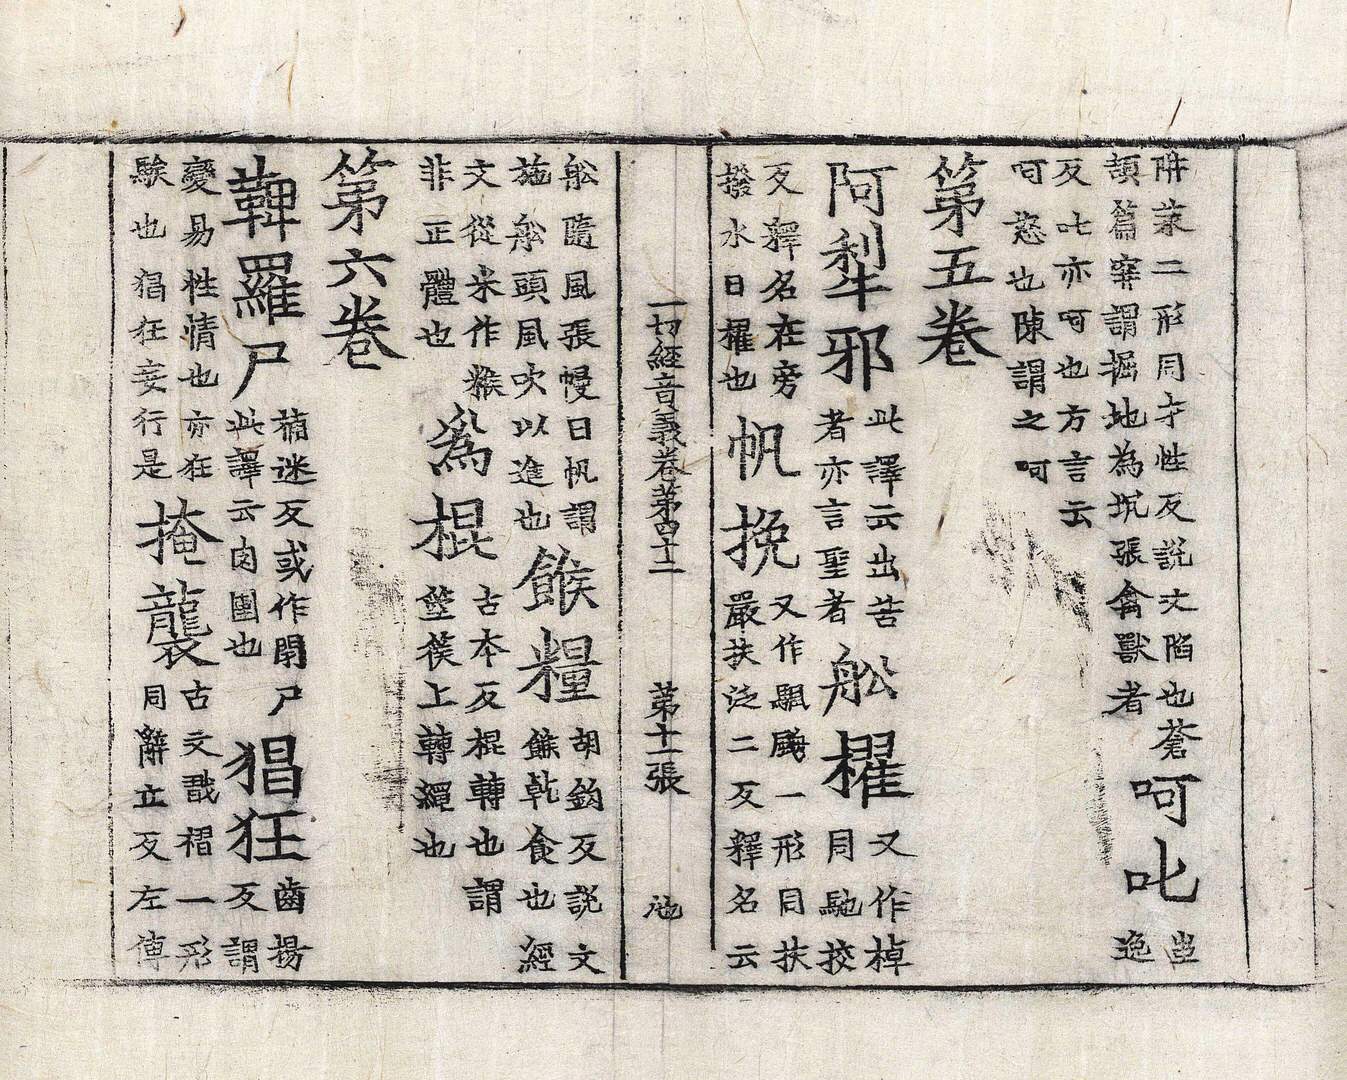 阱莱二形同才性反說文陷也蒼
頡篇穽謂掘地為坑張禽獸者
呵叱
齒逸
反叱亦呵也方言云
呵怒也陳謂之呵
第五卷
阿犁邪
此譯云出苦
者亦言聖者
舩櫂
又作棹
同馳挍
反釋名在旁
撥水曰櫂也
帆挽
又作颿䬞一形同扶
嚴扶泛二反釋名云
一切經音義卷第四十二 第十一張 池
舩隨風張幔曰帆謂
施舩頭風吹以進也
餱糧
胡鉤反說文
餱乾食也經
文從米作糇
非正體也
為棍
古本反棍轉也謂
箜篌上轉繩也
第六卷
鞞羅尸
補迷反或作閇尸
此譯云肉團也
猖狂
齒揚
反謂
變易性情也亦狂
騃也猖狂妄行是
掩襲
古文戩褶一形
同辭立反左傳